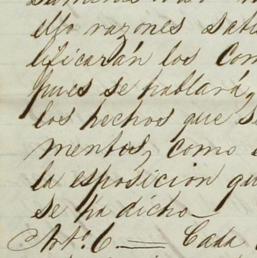 ello razones satis
lificarán los Com
pues se hablará,
los hechos que s
mentos, como
la esposicion qu
se ha dicho_
Art.º 6.__ Cada